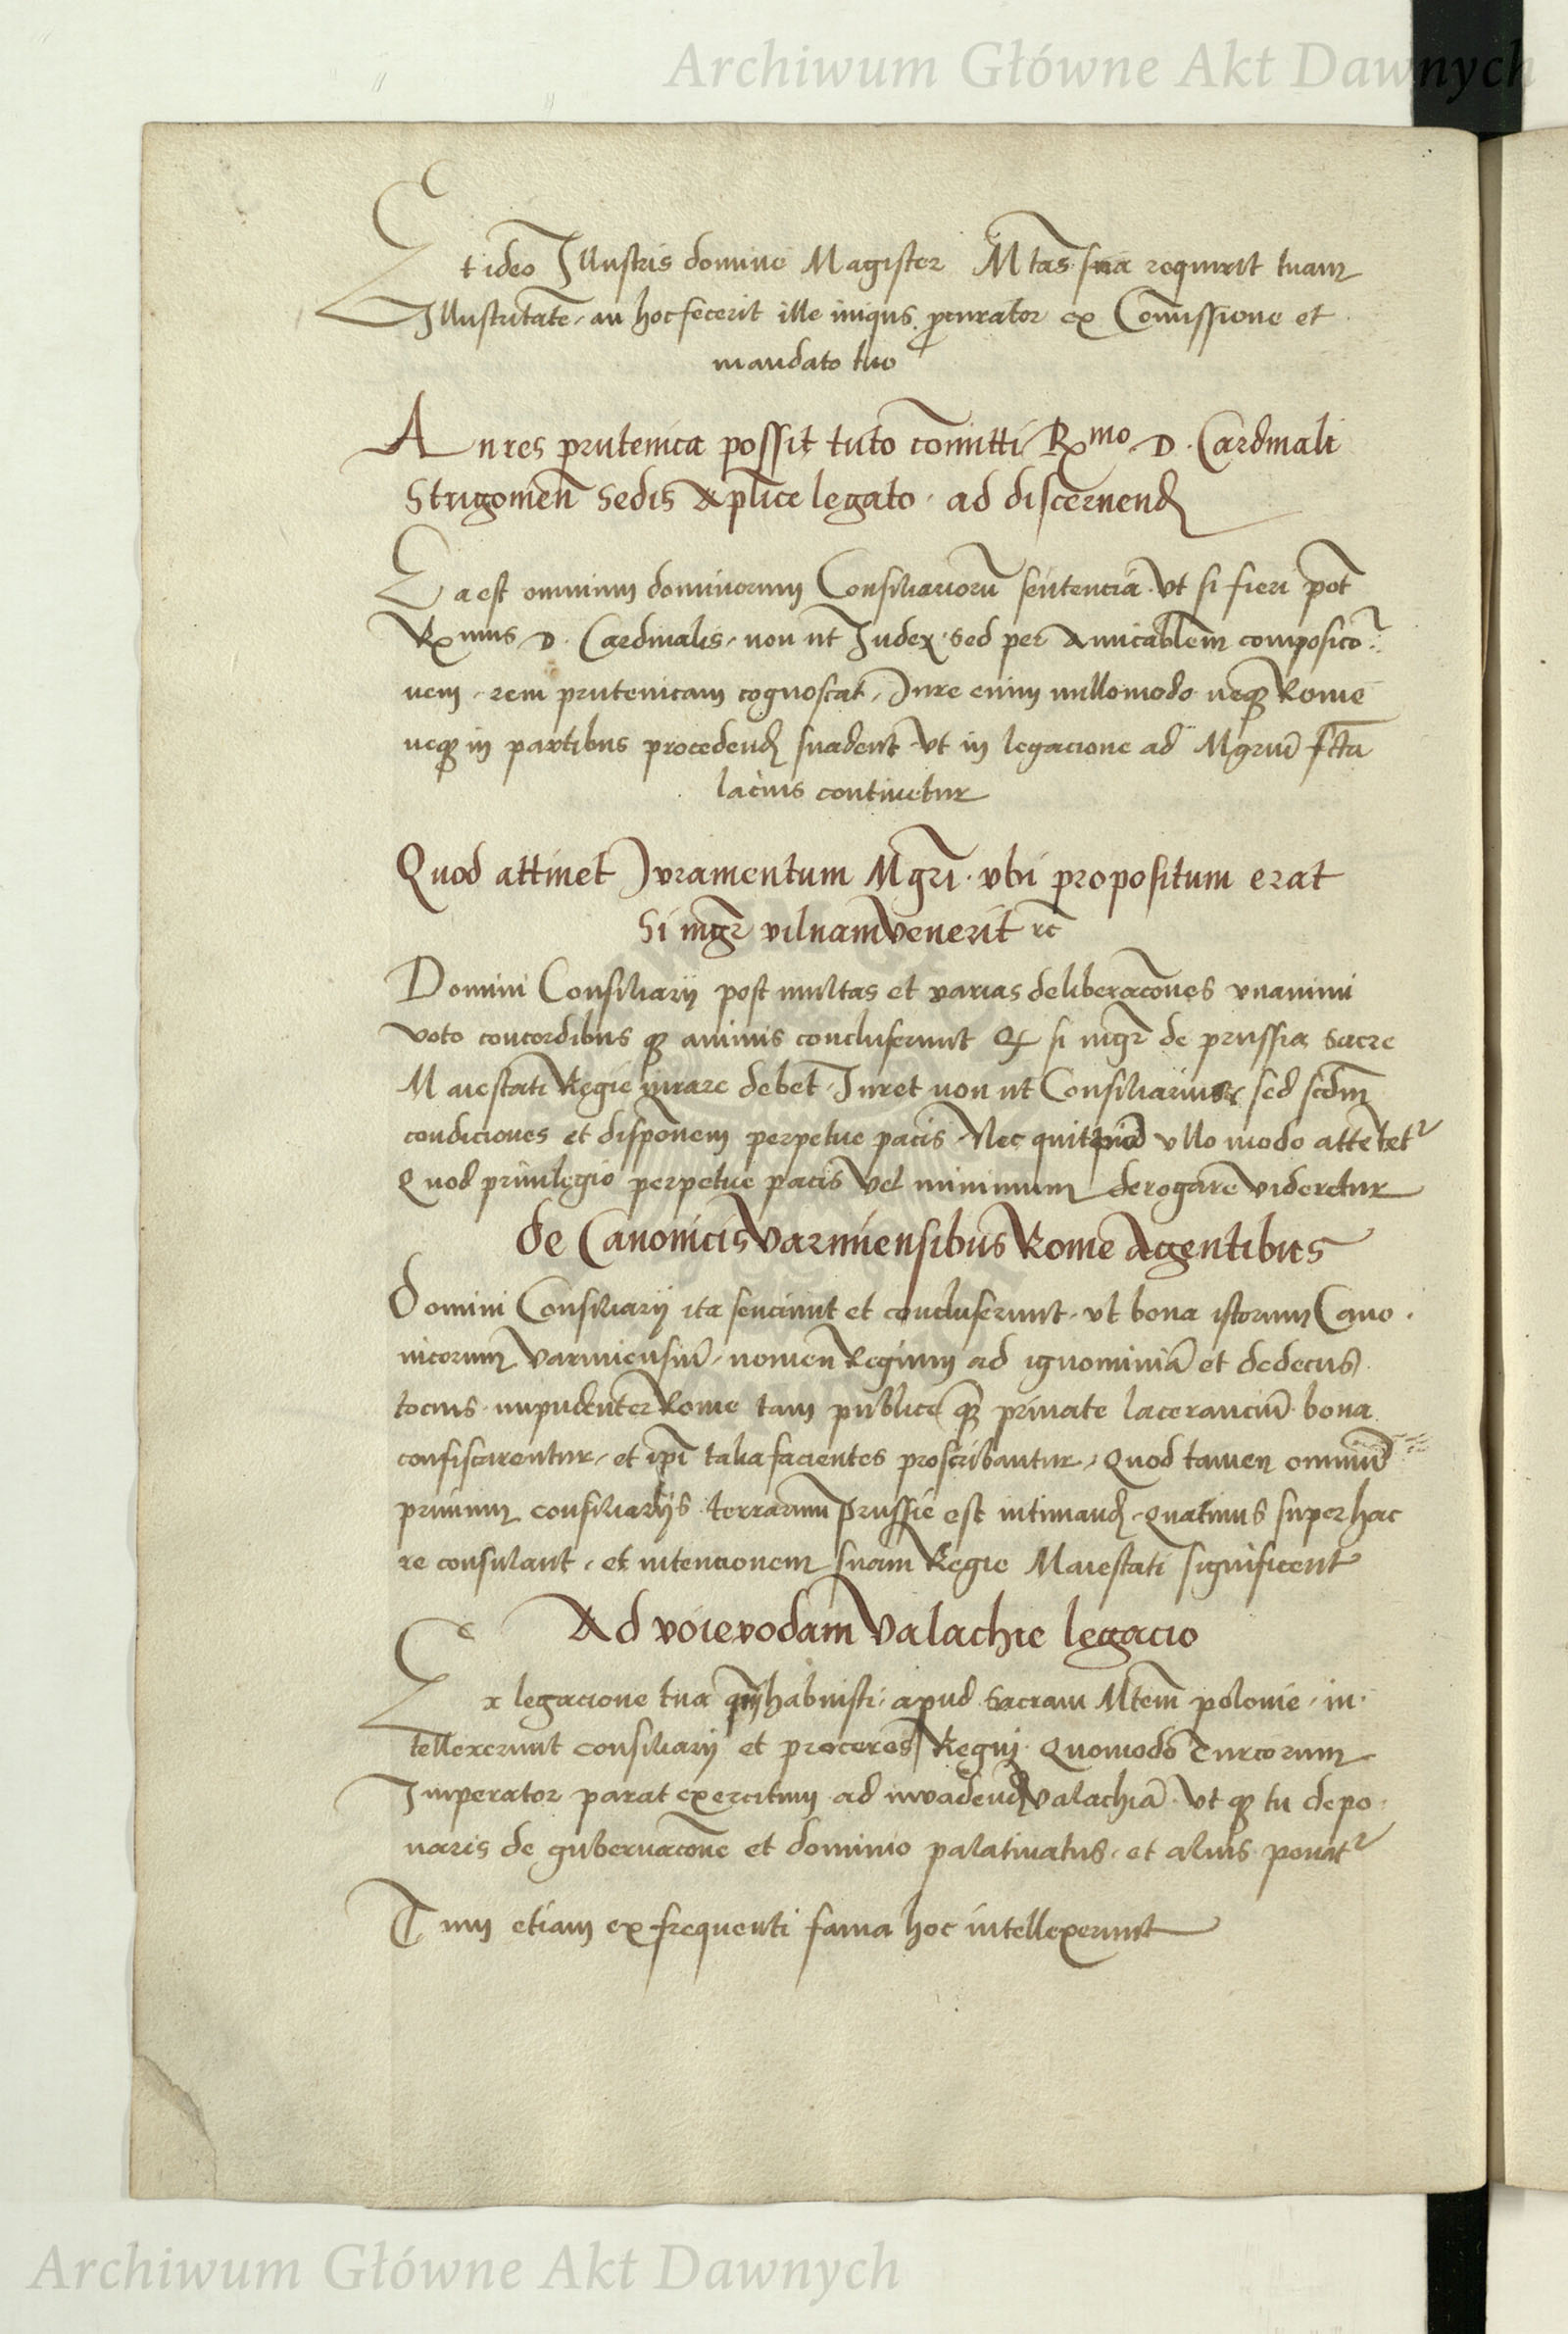 Archiwum Główne Akt Dawnych
Et ideo Illustris domine Magister Mtas sua requirit tuam
Illustritatē, an hoc fecerit ille iniqus ꝓcurator ex Cōmissione et
mandato tuo
An res prutenica possit tuto cōmitti Rmo. D. Cardinali
Strigonieñ Sedis Aplīce legato. ad discernend
Ea est omnium dominorum Consiliariorū sentencia. Vt si fieri pōt
Rmus D. Cardinalis, non ut Iudex. sed per Amicablem̄ composicio
nem, rem prutenicam cognoscat, Iure enim nullomodo neqꝫ Rome
neqꝫ in partibus procedend suadent Vt in legacione ad Mgrum̄ fcta
lacius continetur
Quod attinet Iuramentum Mgrī. vbi propositum erat
Si mgr̄ vilnam venerit rc̄
Domini Consiliarij post multas et varias deliberac̄ones vnanimi
voto concordibus qꝫ animis concluserunt Ꝙ si mgr̄ de prussia sacre
Maiestati Regie iurare debet, Iuret non ut Consiliarius, sed scdm̄
condiciones et dispōnem perpetue pacis, Nec quitquid vllo modo attētetr
Quod priuilegio perpetue pacis vel minimum derogare videretur
de Canonicis Varmiensibus Rome Agentibus
Domini Consiliarij ita senciunt et concluserunt, vt bona istorum Cano.
nicorum Varmiensiū, nomen Regium ad ignominiā et dedecus
tocius impudenter Rome tam publice qꝫ priuate laceranciū. bona
confiscarentur, et ipī talia facientes proscribantur, Quod tamen omniū
primum consiliarijs terrarum Prussie est intimand, Quatinus super hac
re consulant, et intencionem suam Regie Maiestati significent
Ad voievodam Valachie legacio
Ex legacione tua quā habuisti, apud Sacram Mtem̄ polonie, in.
tellexerunt consiliarij et proceres Regni. Quomodo Turcorum
Imperator parat exercitum ad invadend Valachiā. Vt qꝫ tu depo.
naris de gubernac̄one et dominio palatinatus, et alius ponatr
Tum etiam ex frequenti fama hoc intellexerunt
Archiwum Główne Akt Dawnych